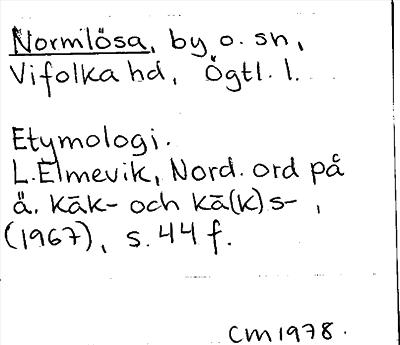 Normlösa, by o. sn,
Vifolka hd, Ögtl. l.
Etymologi.
L. Elmevik, Nord. ord på
ä. kāk- och kā(k)s- ,
(1967), s. 44 f.
CM 1978.